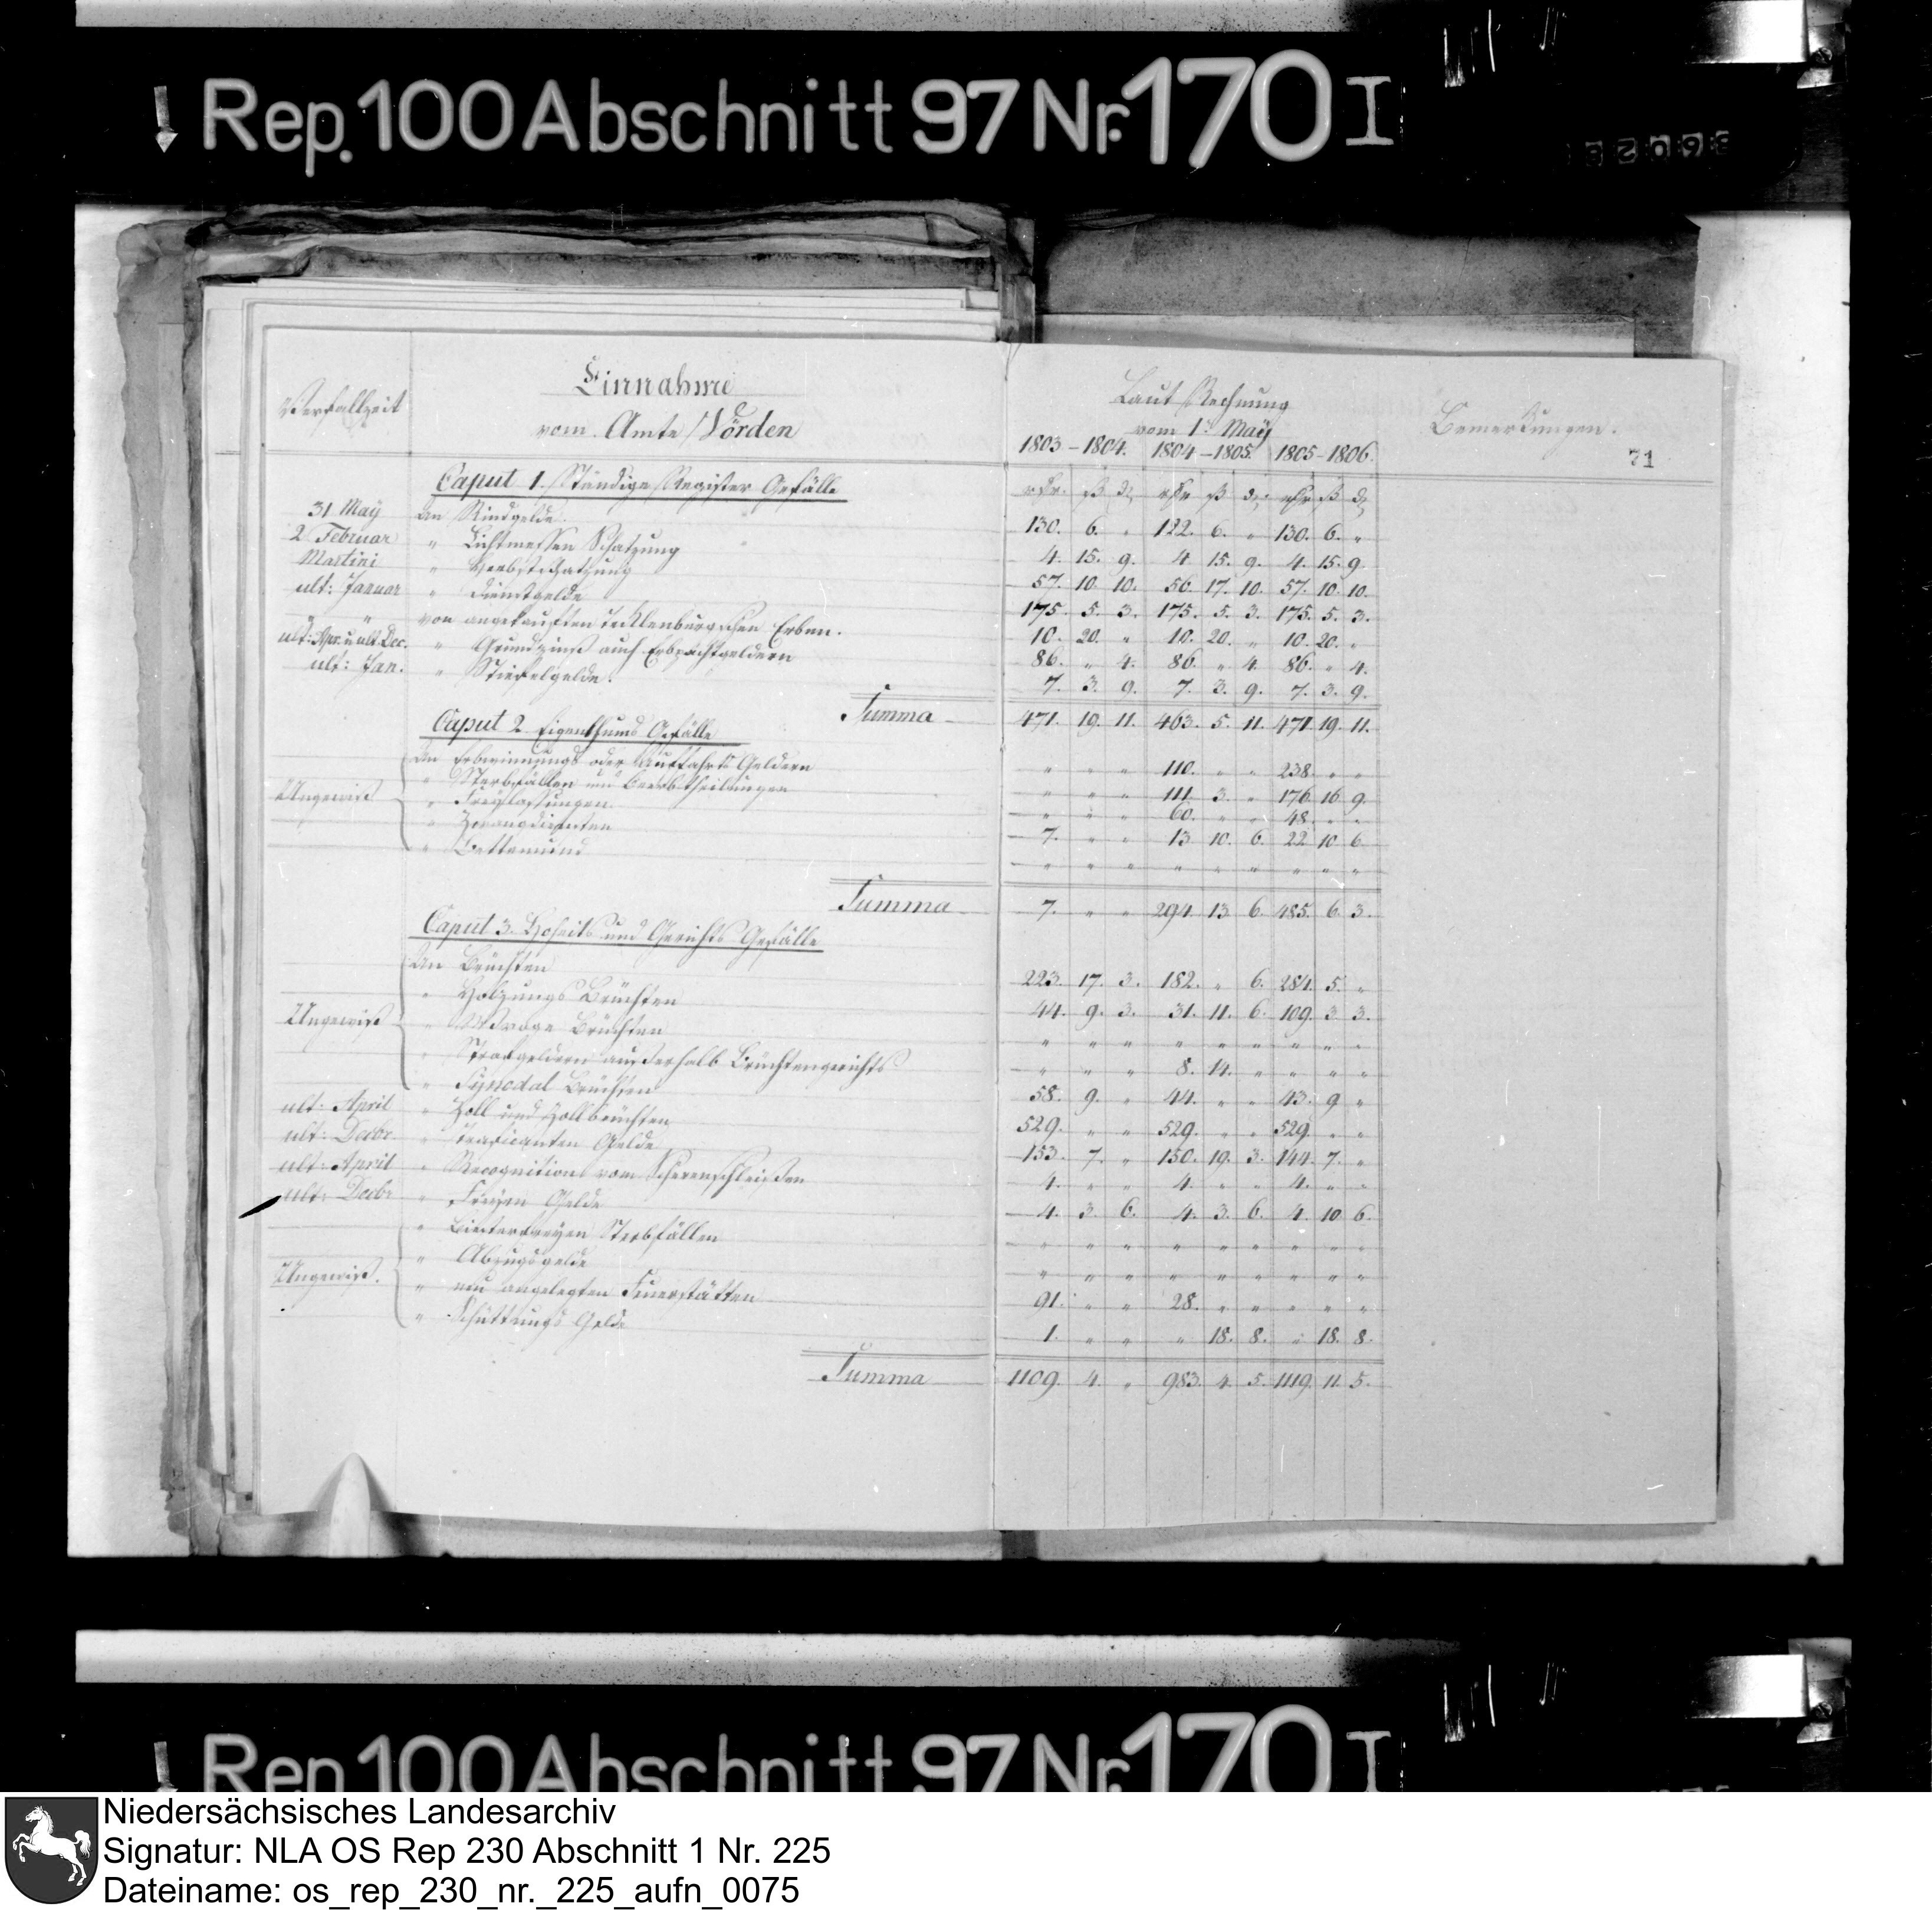 Rep. 100 Abschnitt 97 Nr. 170 I
Verfallzeit
Einnahme
vom Amte Vörden
Laut Rechnung
vom 1t May
Bemerkungen.
1803 - 1804. 1804 - 1805. 1805 - 1806.
71
Caput 1. Ständige Register Gefälle
rthr. ß d rthr ß d rthr ß d
31 May An Rindgelde. 130. 6. " 122. 6. " 130. 6. "
2 Februar " Lichtmessen Schatzung 4. 15. 9. 4 15. 9. 4. 15. 9
Martini " Herbstschatzung 57. 10. 10. 56. 17. 10. 57. 10. 10.
ult: Januar " Dienstgelde 175. 5. 3. 175. 5. 3. 175. 5. 3.
" " von angekauften tecklenburgschen Erben. 10. 20. " 10. 20. " 10. 20. "
ult: Apr. u ult Dec. " Grundzinß auch Erbpachtgeldern 86. " 4. 86. " 4. 86. " 4.
ult: Jan. " Stiefelgelde. 7. 3. 9. 7. 3. 9. 7. 3. 9.
Summa 471. 19. 11. 463. 5. 11. 471. 19. 11.
Caput 2 Eigenthums Gefälle
An Erbwinnungs oder Auffahrts Geldern " " " 110. " " 238. " "
" Sterbfällen und Beerbtheilungen " " " 111. 3. " 176. 16 9.
Ungewiß " Freylassungen " " " 60. " " 48. " "
" Zwangdiensten 7. " " 13 10. 6. 22 10 6
" Bettemund " " " " " " " " "
Summa 7. " " 294. 13 6. 485. 6. 3.
Caput 3. Hoheits und Gerichts Gefälle
An Brüchten 223. 17. 3. 182. " 6. 284. 5. "
" Holzungs Brüchten 44. 9. 3. 31. 11. 6. 109. 3 3.
Ungewiß " Wroge Brüchten " " " " " " " " "
" Strafgeldern ausserhalb Brüchtengerichts " " " 8. 14. " " " "
" Synodal Brüchten 58. 9. " 44. " " 43. 9 "
ult: April " Zoll und Zollbrüchten 529. " " 529. " " 529. " "
ult: Decbr. " Traficanten Gelde 153. 7. " 150. 19. 3. 144. 7. "
ult: April " Recognition vom Scherenschleifen 4. " " 4. " " 4. " "
ult: Decbr " Freyen Gelde 4. 3 6. 4. 3. 6. 4. 10 6.
" Biesterfreyen Sterbfällen " " " " " " " " "
" Abzugsgelde " " " " " " " " "
Ungewiß. " neu angelegten Feuerstätten 91. " " 28. " " " " "
" Schüttungs Gelde 1. " " " 18. 8. " 18. 8.
Summa 1109. 4. " 983. 4. 5. 1119. 11. 5.
Rep 100 Abschnitt 97 Nr. 170 I
Niedersächsisches Landesarchiv
Signatur: NLA OS Rep 230 Abschnitt 1 Nr. 225
Dateiname: os_rep_230_nr._225_aufn_0075